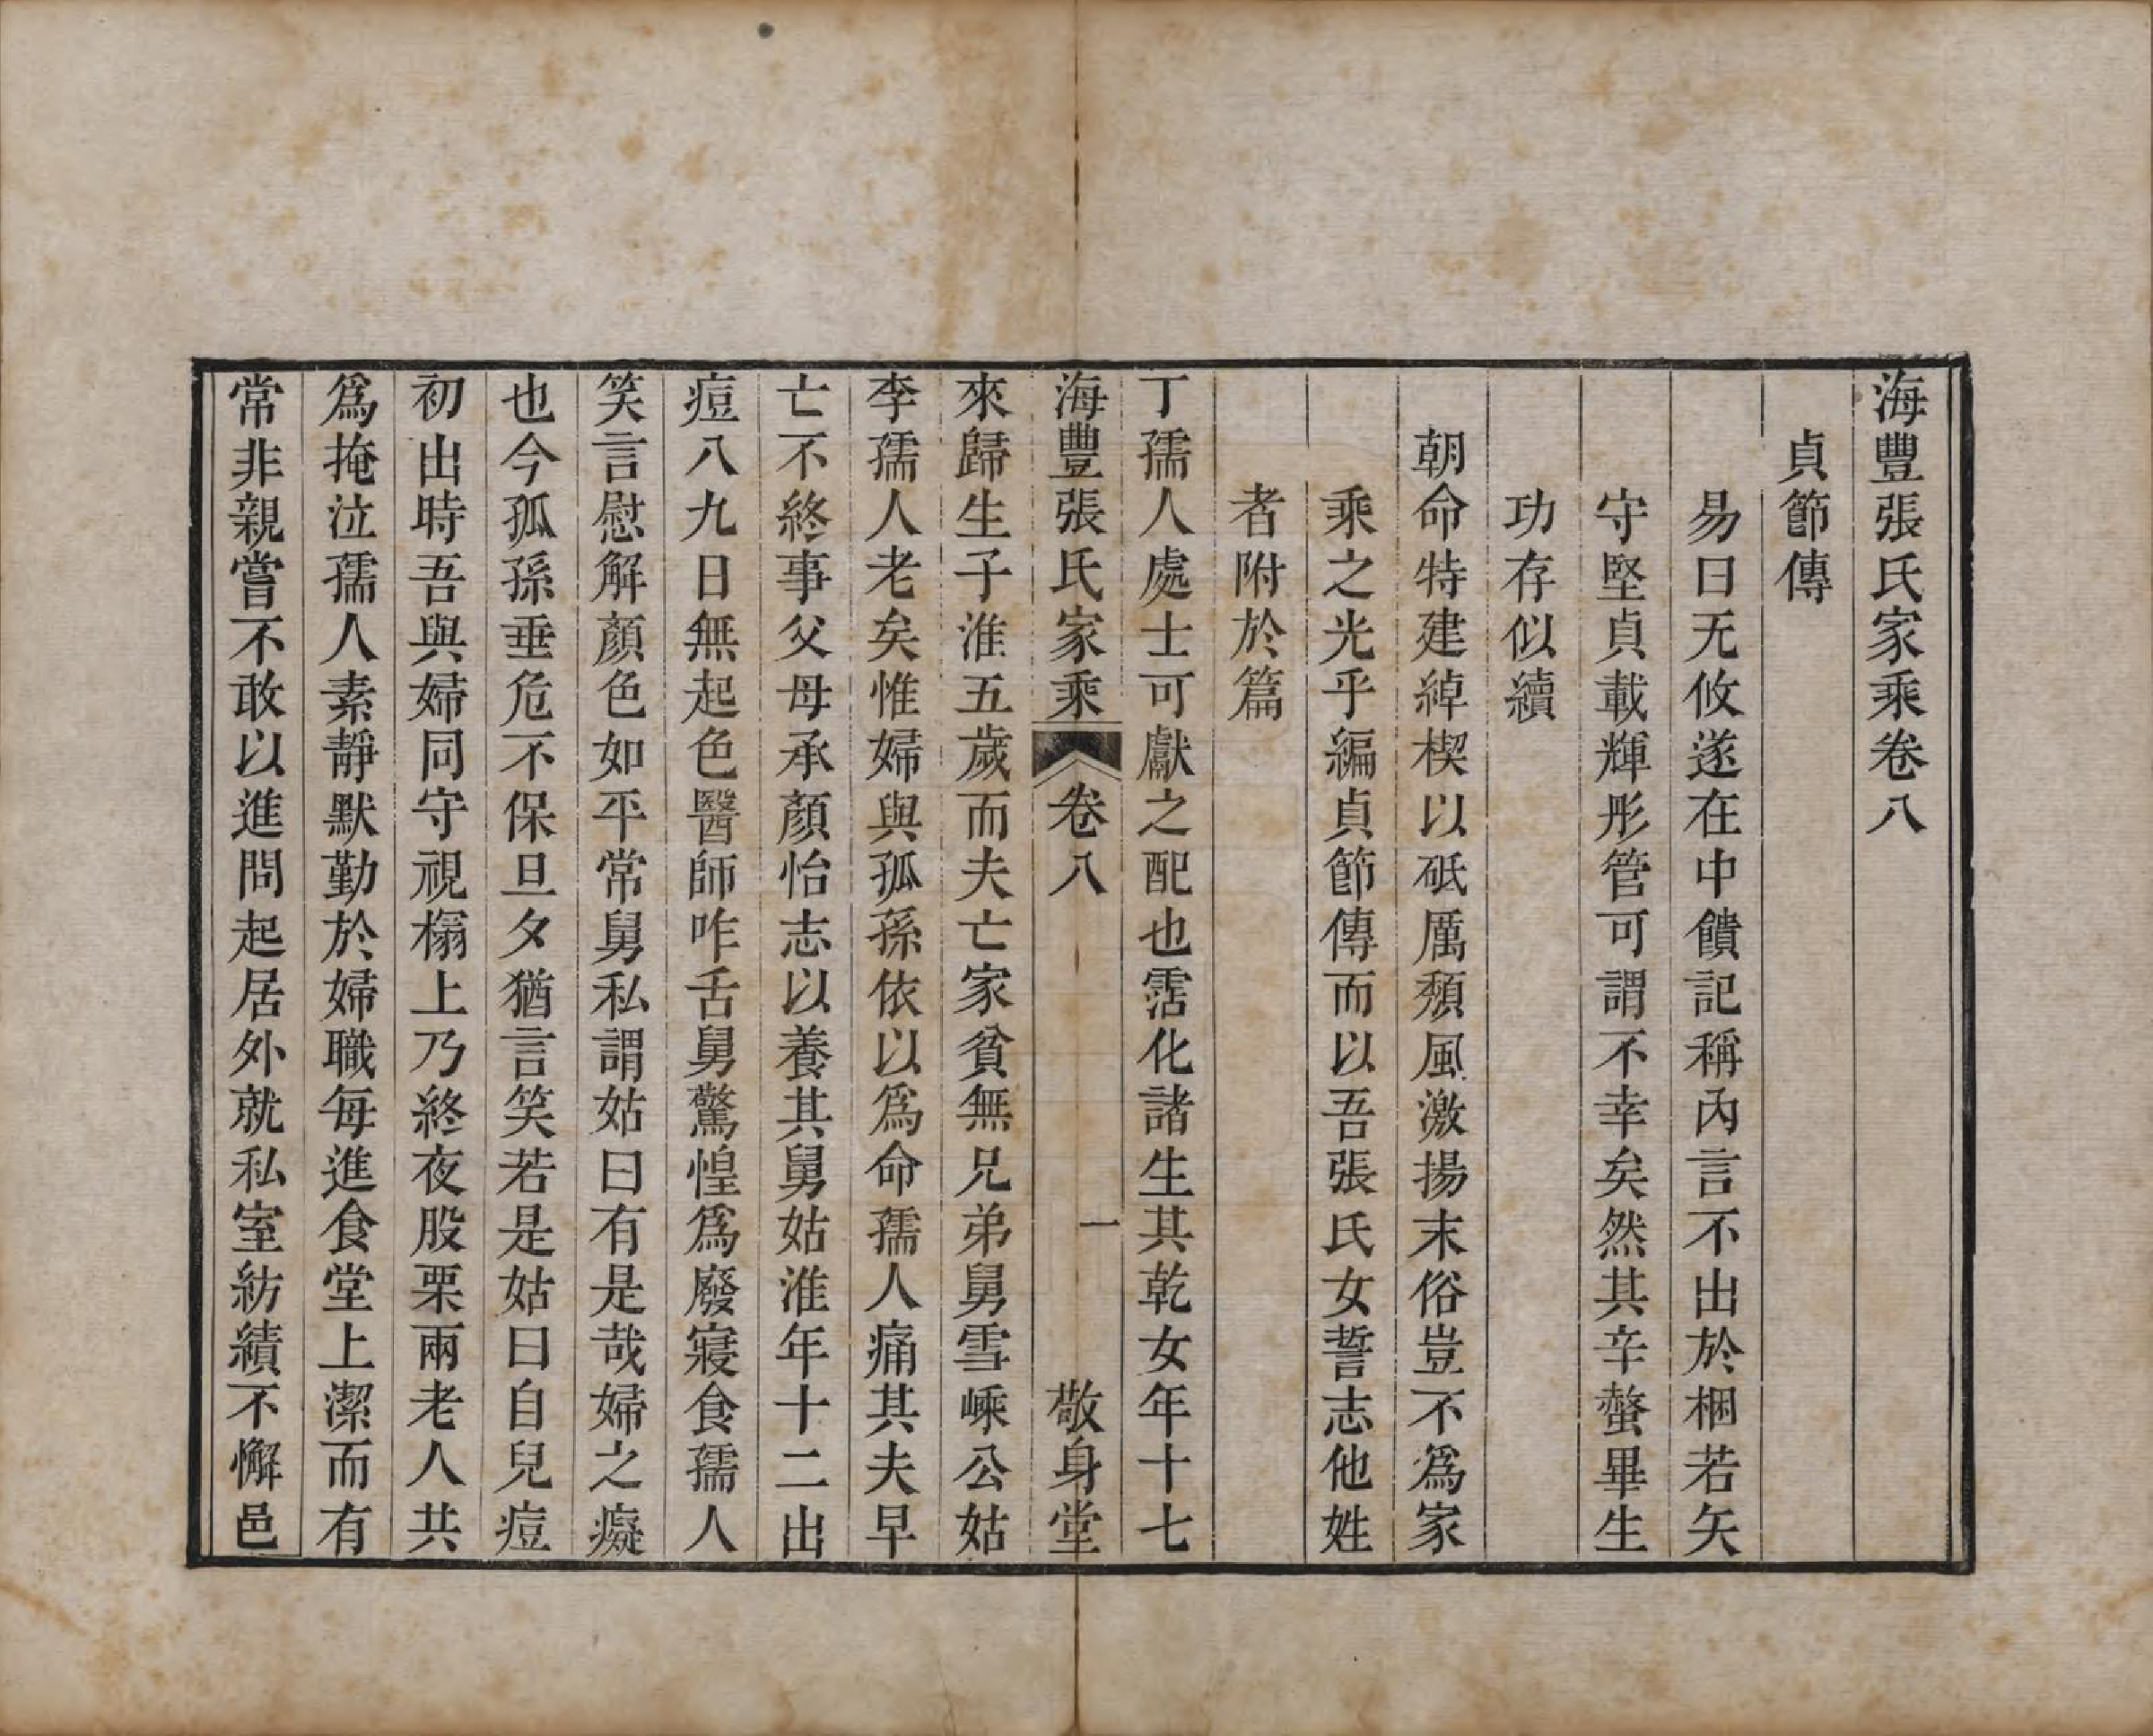 海豐張氏家乘卷八
貞節傳
易曰无攸遂在中饋記稱內言不出於梱若矢
守堅貞載輝彤管可謂不幸矣然其辛螫畢生
功存似續
朝命特建綽楔以砥厲頹風激揚末俗豈不爲家
乘之光乎編貞節傳而以吾張氏女誓志他姓
者附於篇
丁孺人處士可獻之配也霑化諸生其乾女年十七
海豐張氏家乘 卷八 一 敬身堂
來歸生子淮五歲而夫亡家貧無兄弟舅雪嵊公姑
李孺人老矣惟婦與孤孫依以爲命孺人痛其夫早
亡不終事父母承顏怡志以養其舅姑淮年十二出
痘八九日無起色醫師咋舌舅驚惶爲廢寢食孺人
笑言慰解顏色如平常舅私謂姑曰有是哉婦之癡
也今孤孫垂危不保旦夕猶言笑若是姑曰自兒痘
初出時吾與婦同守視榻上乃終夜股栗兩老人共
爲掩泣孺人素靜默勤於婦職每進食堂上潔而有
常非親嘗不敢以進問起居外就私室紡績不懈邑